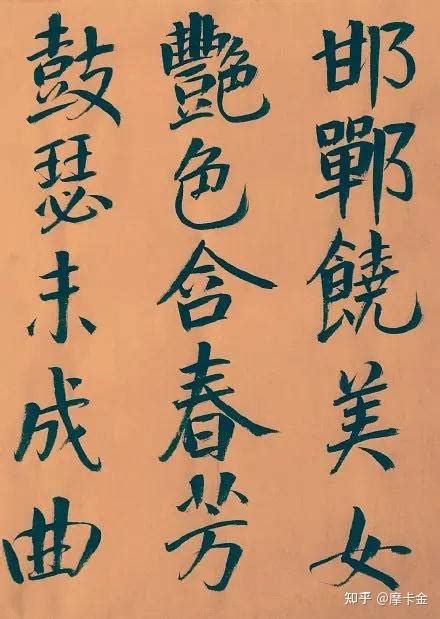 邯鄲饒美女
豔色含春芳
鼓瑟未成曲
知乎 @摩卡金